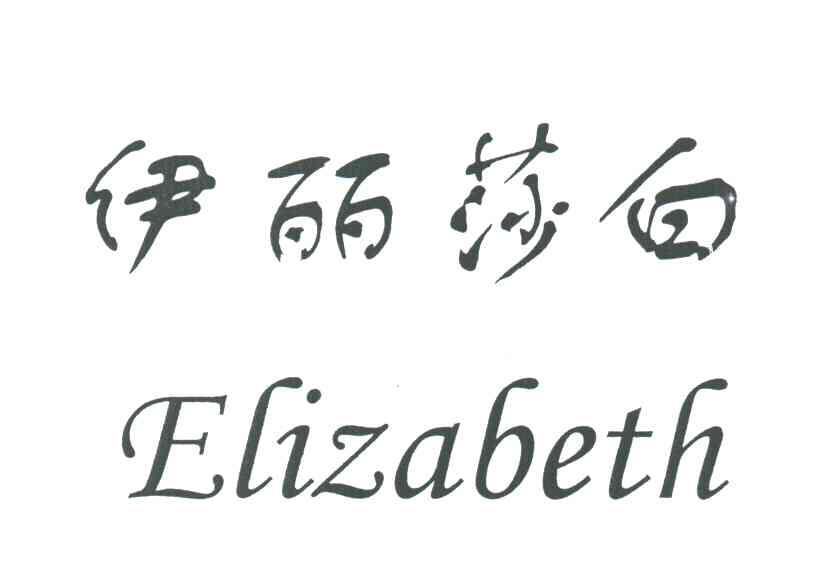 伊丽莎白
Elizabeth